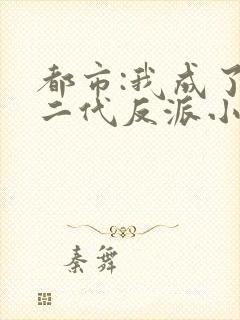 都市:我成了
二代反派小
秦舞